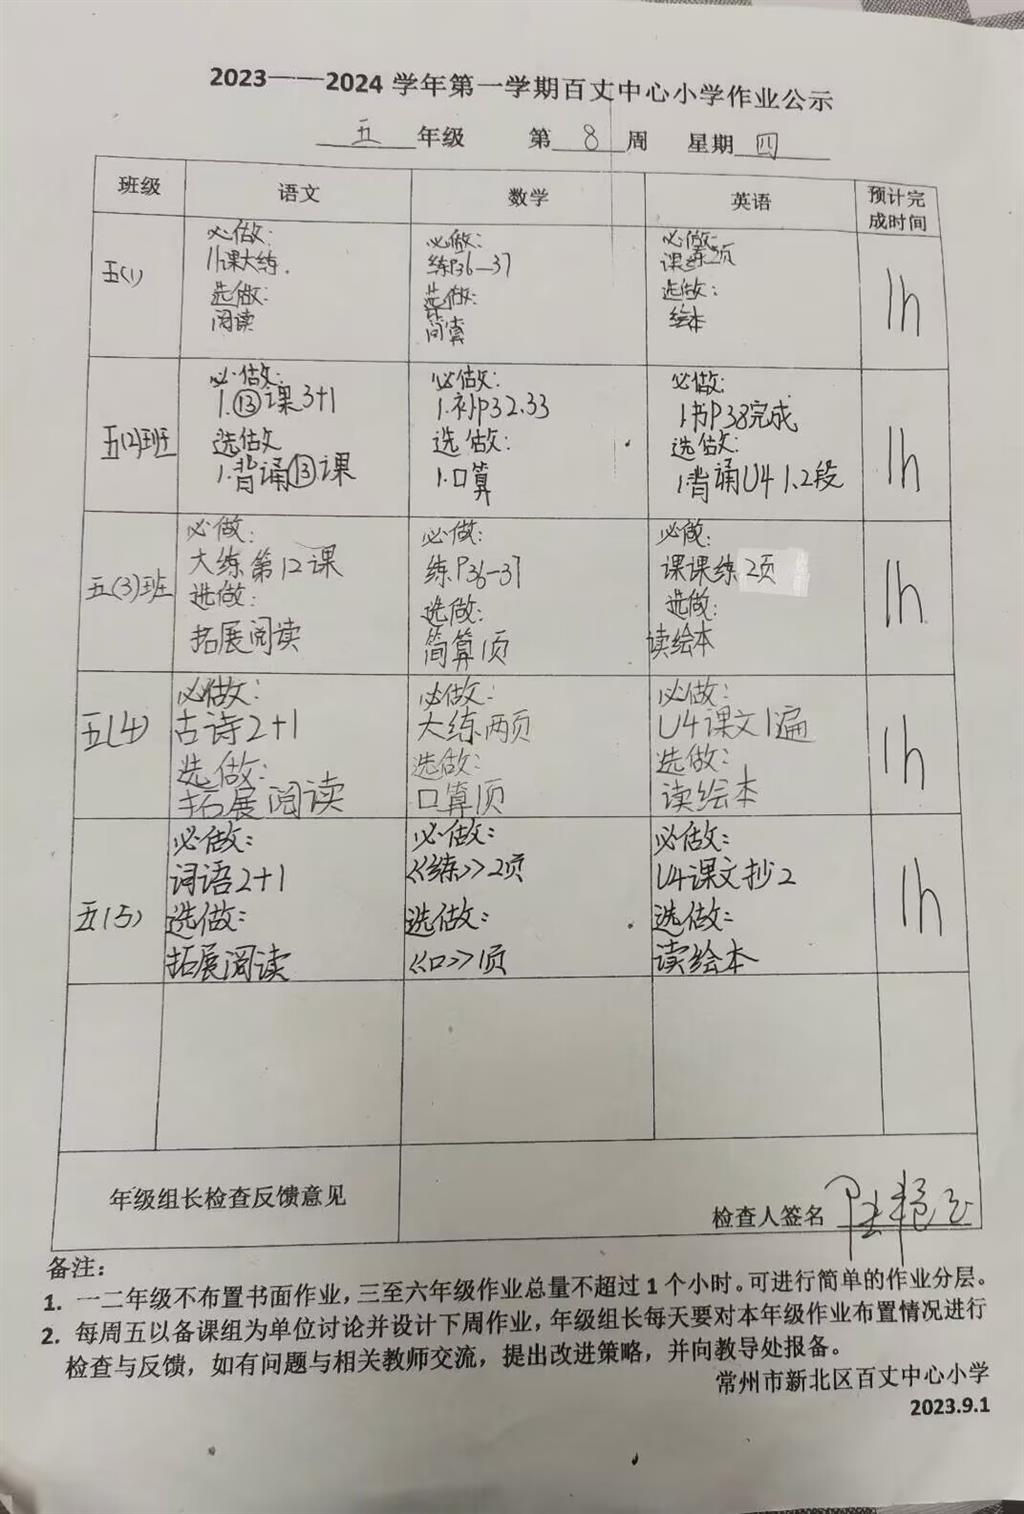 2023——2024 学年第一学期百丈中心小学作业公示
五 年级 第 8 周 星期 四
班级 语文 数学 英语 预计完成时间
五(1)
必做:
11课大练.
选做:
阅读
必做:
练P36—37
选做:
简算
必做:
课练2页
选做:
绘本
1h
五(2)班
必做:
1.⑬课3+1
选做
1.背诵⑬课
必做:
1.补P32.33
选做:
1.口算
必做:
1.书P38完成
选做:
1.背诵U4 1.2段
1h
五(3)班
必做:
大练第12课
选做:
拓展阅读
必做:
练P36-37
选做:
简算1页
必做:
课课练2页
选做:
读绘本
1h
五(4)
必做:
古诗2+1
选做:
拓展阅读
必做:
大练两页
选做:
口算1页
必做:
U4课文1遍
选做:
读绘本
1h
五(5)
必做:
词语2+1
选做:
拓展阅读
必做:
《练》2页
选做:
《口》1页
必做:
U4课文抄2
选做:
读绘本
1h
年级组长检查反馈意见
检查人签名
备注:
1. 一二年级不布置书面作业，三至六年级作业总量不超过 1 个小时。可进行简单的作业分层。
2. 每周五以备课组为单位讨论并设计下周作业，年级组长每天要对本年级作业布置情况进行
检查与反馈，如有问题与相关教师交流，提出改进策略，并向教导处报备。
常州市新北区百丈中心小学
2023.9.1